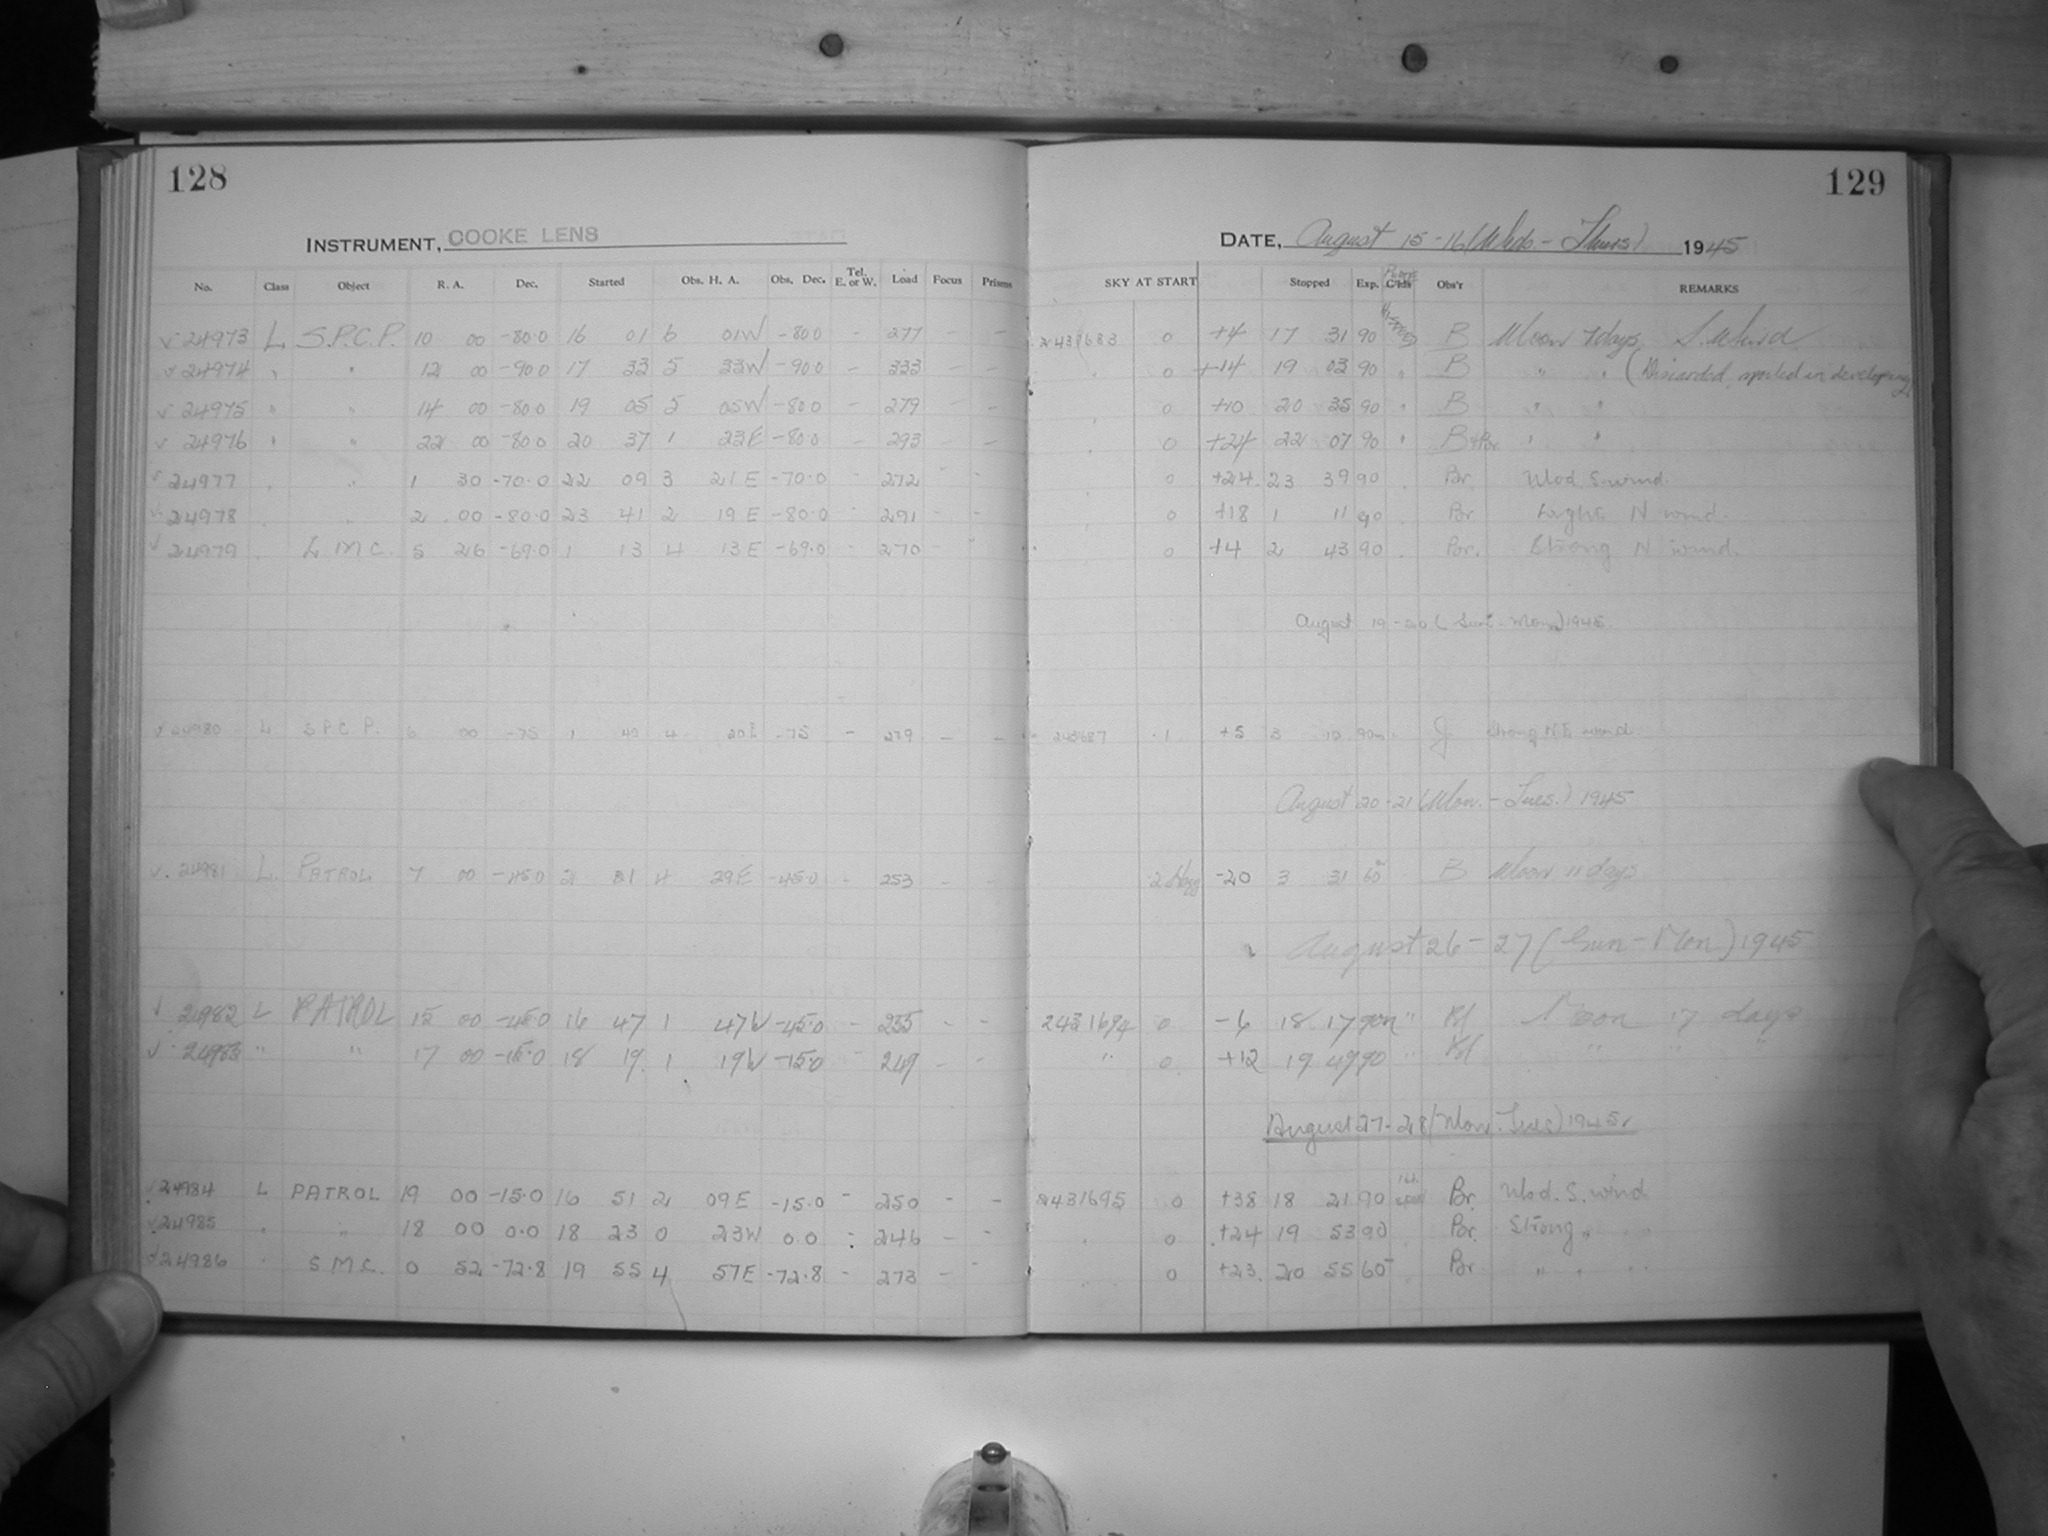 128
129
INSTRUMENT, COOKE LENS
DATE, August 15-16 (Weds - Thurs) 1945
No. Class Object R. A. Dec. Started Obs. H. A. Obs. Dec. Tel. E. or W. Load Focus Prisms SKY AT START Stopped Exp. Obs'r REMARKS
√ 24973 L S.P.C.P. 10 00 -80.0 16 01 6 01W -80.0 - 277 - - 2431683 0 +4 17 31 90 B Moon 7 days. S. Wind
√ 24974 " " 12 00 -90.0 17 33 5 33W -90.0 - 333 - - " 0 +14 19 03 90 " B " " (Discarded, spoiled in developing)
√ 24975 " " 14 00 -80.0 19 05 5 05W -80.0 - 279 - - " 0 +10 20 35 90 " B " "
√ 24976 " " 22 00 -80.0 20 37 1 23E -80.0 - 293 - - " 0 +24 22 07 90 " B+Br. " "
√ 24977 " " 1 30 -70.0 22 09 3 21E -70.0 - 272 - - " 0 +24 23 39 90 " Br. Mod S. wind.
√ 24978 " " 2 00 -80.0 23 41 2 19E -80.0 - 291 - - " 0 +18 1 11 90 " Br. Light N wind.
√ 24979 " L.M.C. 5 26 -69.0 1 13 4 13E -69.0 - 270 - - " 0 +4 2 43 90 " Br. Strong N wind.
August 19-20 (Sun - Mon) 1945
√ 24980 L S P C P. 6 00 -75 1 40 4 20E -75 - 279 - - 1 +5 3 10 90m J Strong N E wind.
August 20-21 (Mon. - Tues.) 1945
√ 24981 L. PATROL 7 00 -45.0 2 31 4 29E -45.0 - 253 - - 2 Hazy -20 3 31 60 B Moon 11 days
August 26-27 (Sun-Mon) 1945
√ 24982 L PATROL 15 00 -45.0 16 47 1 47W -45.0 - 235 - - 2431694 0 -6 18 17 90m " Moon 17 days
√ 24983 " " 17 00 -15.0 18 19 1 19W -15.0 - 249 - - " 0 +12 19 49 90 " " " "
August 27-28 (Mon - Tues) 1945.
√ 24984 L PATROL 19 00 -15.0 16 51 2 09E -15.0 - 250 - - 2431695 0 +38 18 21 90 Br. Mod. S. wind
√ 24985 " " 18 00 0.0 18 23 0 23W 0.0 - 246 - - " 0 +24 19 53 90 Br. Strong " "
√ 24986 " S M C. 0 52 -72.8 19 55 4 57E -72.8 - 273 - - " 0 +23 20 55 60 Br. " " "